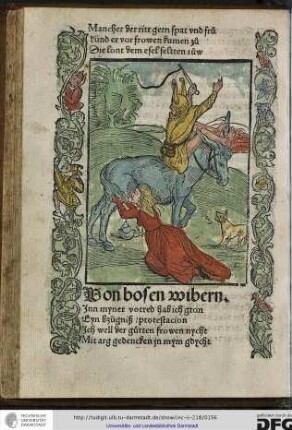 Mancher der ritt gern spat vnd frů
künd er vor frowen kumen zů
Die lont dem esel seltten růw
Von bosen wibern.
Inn myner vorred hab ich gton
Eyn bzügniß / protestacion
Ich well der gůtten frowen nycht
Mit arg gedencken in mym gdycht
http://tudigit.ulb.tu-darmstadt.de/show/inc-ii-218/0156
Universitäts- und Landesbibliothek Darmstadt